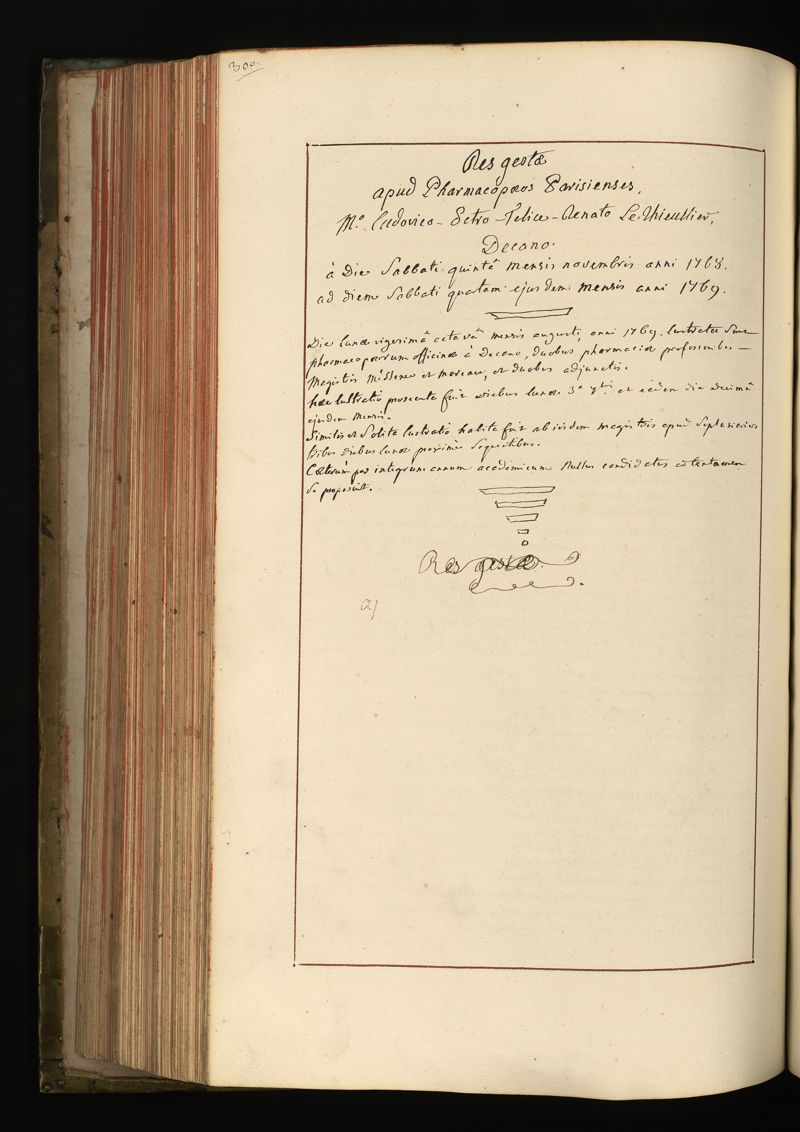 300.
Res gestæ
apud Pharmacopæos Parisienses,
M.o Ludovico-Petro-Felice-Renato Le Thieullier,
Decano.
à Die Sabbati quintâ mensis novembris anni 1768.
ad diem Sabbati quatam ejusdem mensis anni 1769.
Die lunæ vigesimâ octavâ mensis augusti, anni 1769. lustratæ sunt
pharmacopæorum officinæ à Decano, duobus pharmaciæ professoribus
Magistris et moreau, et duobus adjunctis.
hæc lustratio fuit diebus lunæ et eâdem die decimâ
ejusdem mensis.
Similis et Solita lustratio habita fuit ab iisdem magistris apud
tribus diebus lunæ proximè Sequentibus.
Cæterùm per integrum annum academicum Nullus candidatus ad tentamen
Se proposuit.
Res gestæ.
a)